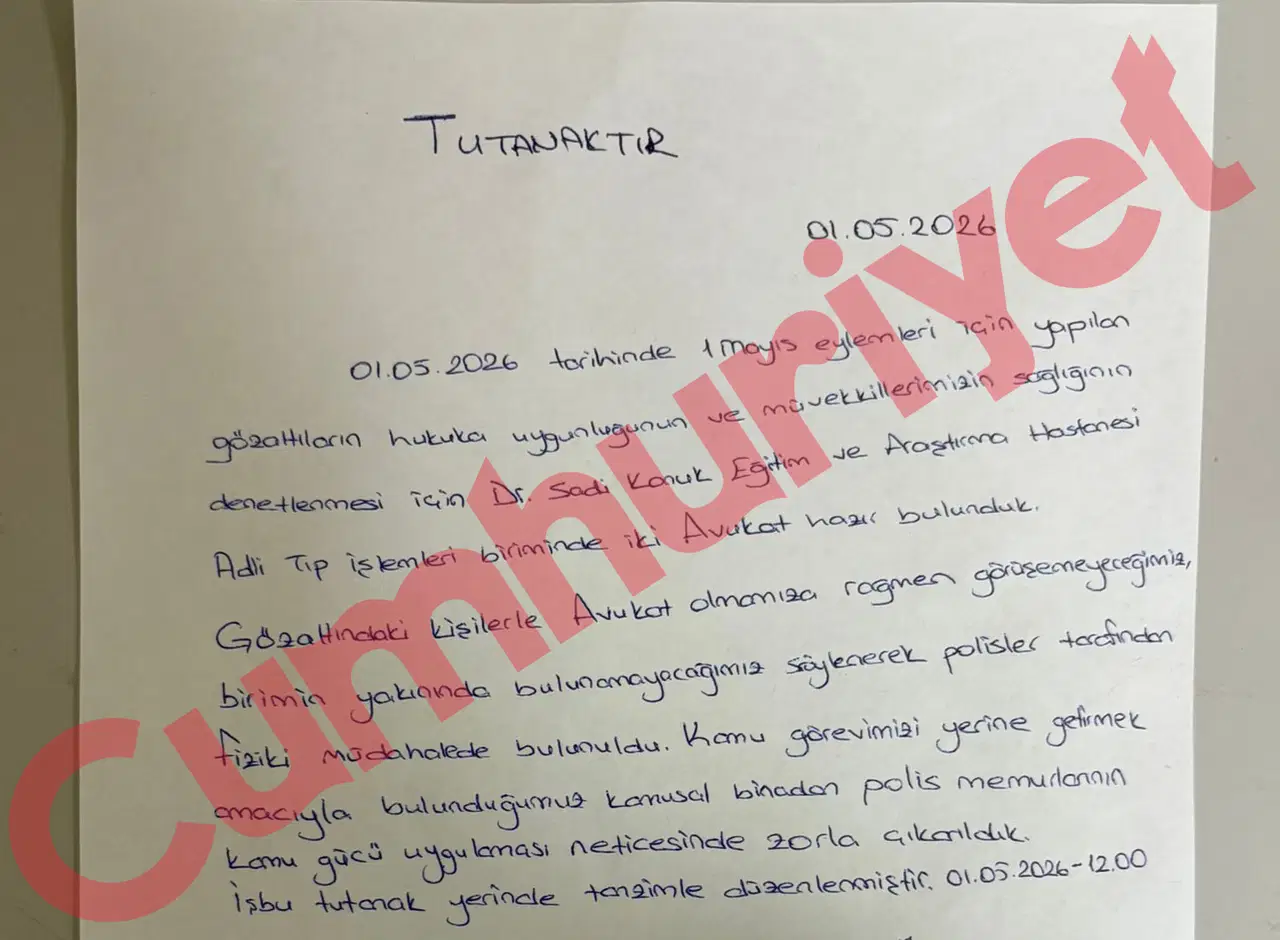 TUTANAKTIR
01.05.2026
01.05.2026 tarihinde 1 Mayıs eylemleri için yapılan
gözaltıların hukuka uygunluğunun ve müvekkillerimizin sağlığının
denetlenmesi için Dr. Sadi Konuk Eğitim ve Araştırma Hastanesi
Adli Tıp işlemleri biriminde iki Avukat hazır bulunduk.
Gözaltındaki kişilerle Avukat olmamıza rağmen görüşemeyeceğimiz,
birimin yakınında bulunamayacağımız söylenerek polisler tarafından
fiziki müdahalede bulunuldu. Kamu görevimizi yerine getirmek
amacıyla bulunduğumuz kamusal binadan polis memurlarının
kamu gücü uygulaması neticesinde zorla çıkarıldık.
İşbu tutanak yerinde tanzimle düzenlenmiştir. 01.05.2026-12.00
Cumhuriyet